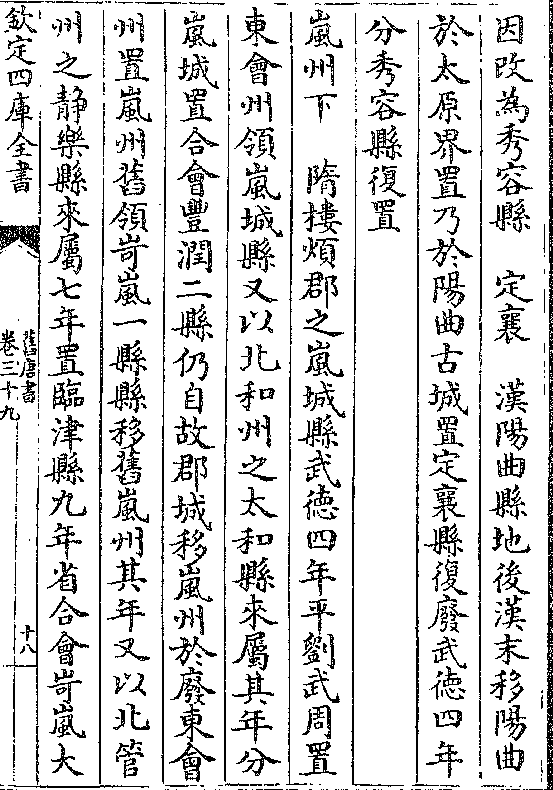 因改為秀容縣　定襄　漢陽曲縣地後漢末移陽曲
於太原界置乃於陽曲古城置定襄縣復廢武德四年
分秀容縣復置
嵐州下　隋樓煩郡之嵐城縣武德四年平劉武周置
東會州領嵐城縣又以北和州之太和縣來屬其年分
嵐城置合會豐潤二縣仍自故郡城移嵐州於廢東會
州置嵐州舊領岢嵐一縣縣移舊嵐州其年又以北管
州之静樂縣來屬七年置臨津縣九年省合會岢嵐大
欽定四庫全書
舊唐書
卷三十九
十八